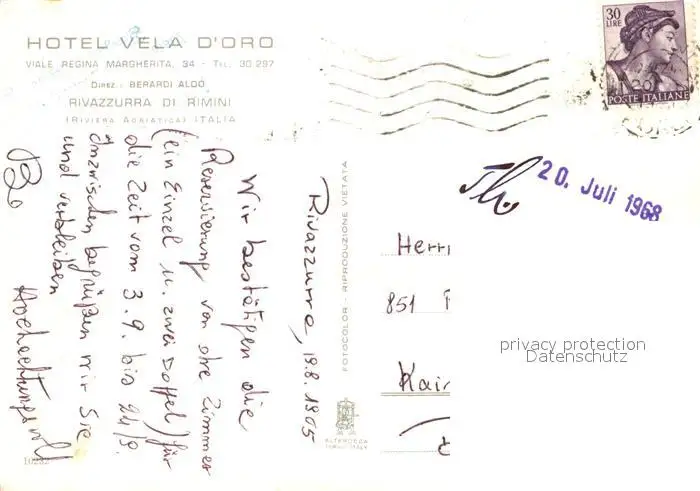 HOTEL VELA D'ORO
VIALE REGINA MARGHERITA, 34 - TEL. 30.297
DIREZ.: BERARDI ALDO
RIVAZZURRA DI RIMINI
(RIVIERA ADRIATICA) ITALIA
30
LIRE
POSTE ITALIANE
20. Juli 1968
Rivazzurra, 19.8.1965
Wir bestätigen die
Reservierung von drei Zimmer
(ein Einzel u. zwei Doppel) für
die Zeit vom 3.9. bis 24/9.
Inzwischen begrüßen wir Sie
und verbleiben
Hochachtungsvoll
FOTOCOLOR - RIPRODUZIONE VIETATA
ALTEROCCA
TERNI ITALY
Herrn
851
privacy protection
Datenschutz